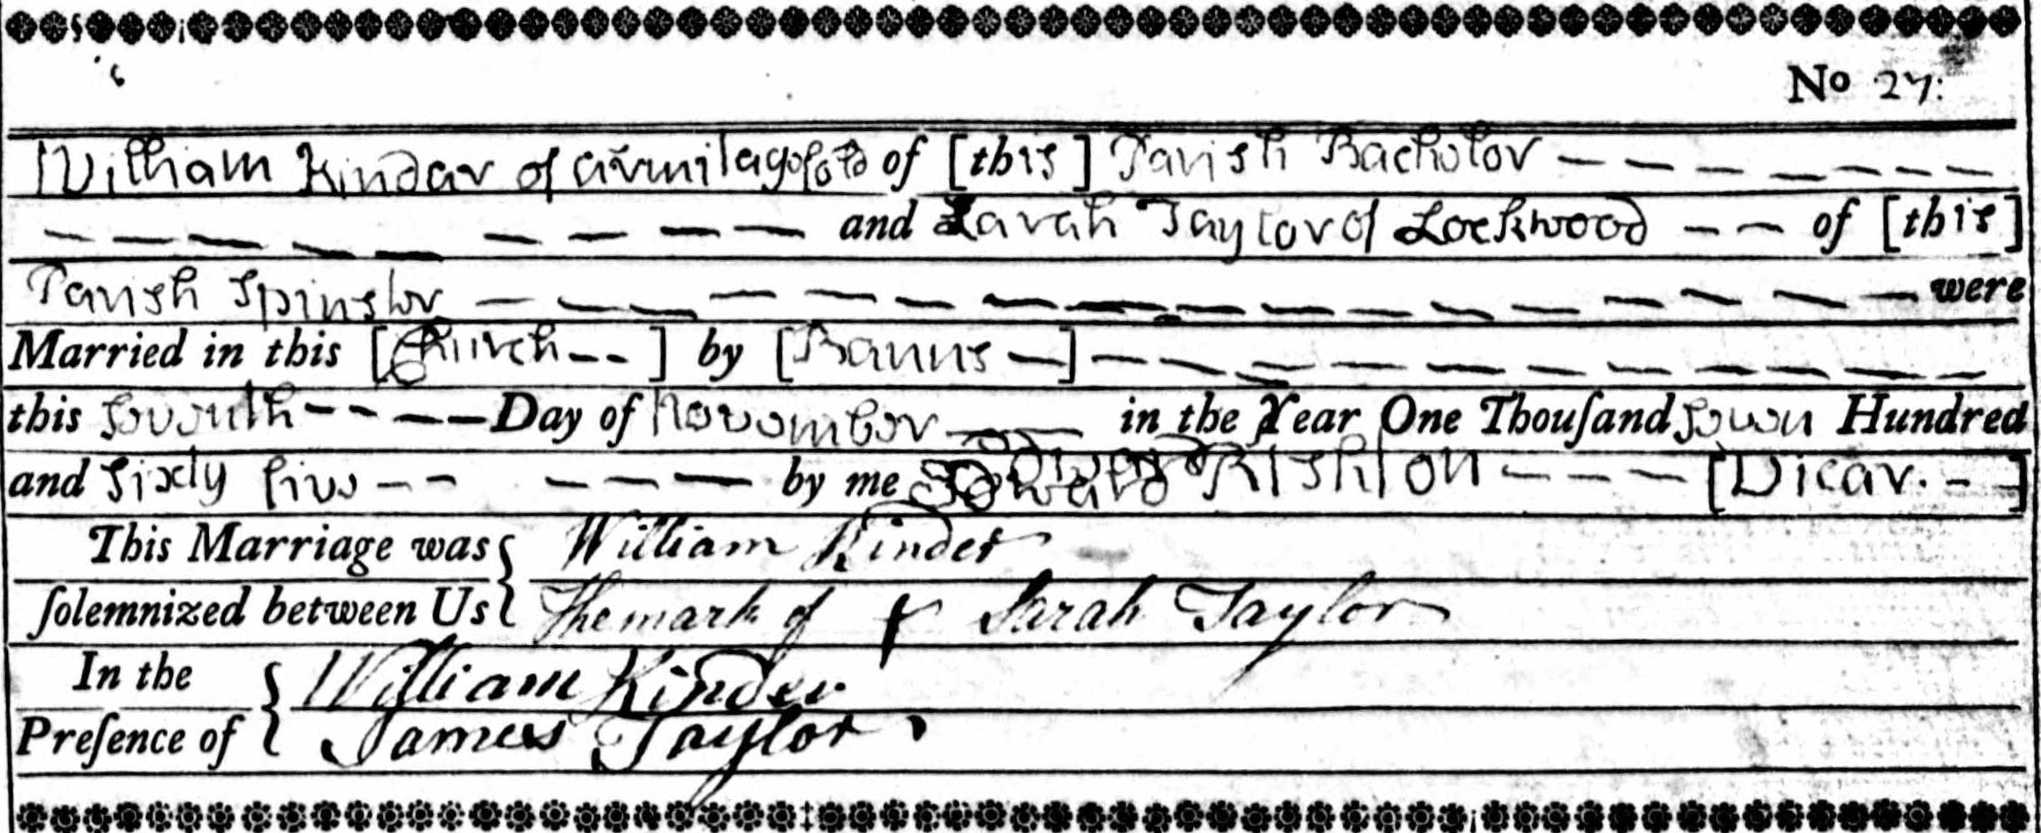 No 27:
William Kinder of Armitagefold of [this] Parish Bachelor
and Sarah Taylor of Lockwood of [this]
Parish Spinster were
Married in this [Church] by [Banns]
this Seventh Day of November in the Year One Thouſand Seven Hundred
and Sixty five by me Edward Rishton [Vicar.]
This Marriage was { William Kinder
ſolemnized between Us { The mark of X Sarah Taylor
In the { William Kinder
Preſence of { James Taylor